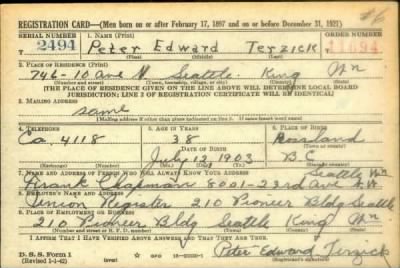 REGISTRATION CARD—(Men born on or after February 17, 1897 and on or before December 31, 1921)
SERIAL NUMBER 1. NAME (Print) ORDER NUMBER
2494 Peter Edward Terzick 11694
(First) (Middle) (Last)
2. PLACE OF RESIDENCE (Print)
746-10 Ave N Seattle King Wn
(Number and street) (Town, township, village, or city) (County) (State)
[THE PLACE OF RESIDENCE GIVEN ON THE LINE ABOVE WILL DETERMINE LOCAL BOARD
JURISDICTION; LINE 2 OF REGISTRATION CERTIFICATE WILL BE IDENTICAL]
3. MAILING ADDRESS
same
[Mailing address if other than place indicated on line 2. If same insert word same]
4. TELEPHONE 5. AGE IN YEARS 6. PLACE OF BIRTH
Ca. 4118 38 Rossland
DATE OF BIRTH
July 12 1903 B.C.
7. NAME AND ADDRESS OF PERSON WHO WILL ALWAYS KNOW YOUR ADDRESS Seattle Wn
Frank Chapman 8001-23rd Ave N.W.
8. EMPLOYER'S NAME AND ADDRESS
Union Register 210 Pioneer Bldg Seattle
9. PLACE OF EMPLOYMENT OR BUSINESS
210 Pioneer Bldg Seattle King Wn.
(Number and street or R. F. D. number) (Town) (County) (State)
I AFFIRM THAT I HAVE VERIFIED ABOVE ANSWERS AND THAT THEY ARE TRUE.
D. S. S. Form 1 Peter Edward Terzick
(Revised 1-1-42) (Registrant's signature)